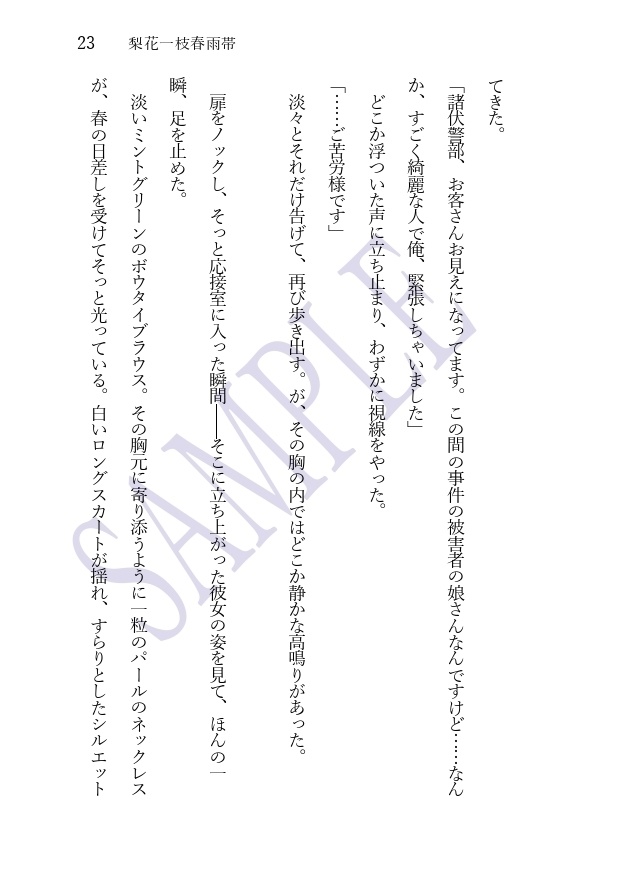 23 梨花一枝春雨帯
てきた。
「諸伏警部、お客さんお見えになってます。この間の事件の被害者の娘さんなんですけど……なん
か、すごく綺麗な人で俺、緊張しちゃいました」
どこか浮ついた声に立ち止まり、わずかに視線をやった。
「……ご苦労様です」
淡々とそれだけ告げて、再び歩き出す。が、その胸の内ではどこか静かな高鳴りがあった。
扉をノックし、そっと応接室に入った瞬間――そこに立ち上がった彼女の姿を見て、ほんの一
瞬、足を止めた。
淡いミントグリーンのボウタイブラウス。その胸元に寄り添うように一粒のパールのネックレス
が、春の日差しを受けてそっと光っている。白いロングスカートが揺れ、すらりとしたシルエット
SAMPLE